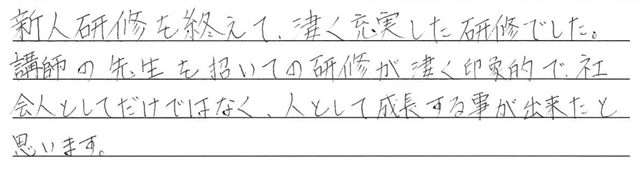 新人研修を終えて、凄く充実した研修でした。
講師の先生を招いての研修が凄く印象的で、社
会人としてだけではなく、人として成長する事が出来たと
思います。